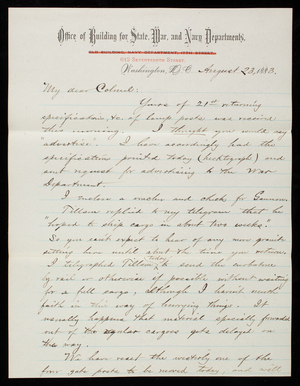 Office of Building for State, War, and Navy Departments,
OLD BUILDING NAVY DEPARTMENT, 17TH STREET,
Washington, D.C. August 23, 1883.
My dear Colonel:
Yours of 21st returning
specification, &c. of lamp posts was received
this morning. I thought you would say
advertise. I have accordingly had the
specification printed today (hectograph) and
sent request for advertising to the War
Department.
I enclose a voucher and check for Gannon.
Tillson replied to my telegram that he
"hoped to ship cargo in about two weeks".
So you can't expect to hear of any more granite
getting here until about the time you return.
I telegraphed Tillson today to send the architrave
by rail or otherwise if possible without waiting
for a full cargo, although I haven't much
faith in this way of hurrying things. It
usually happens that material specially forwarded
out of the regular cargoes gets delayed on
the way.
We have reset the westerly one of the
four gate posts to be moved today, and will